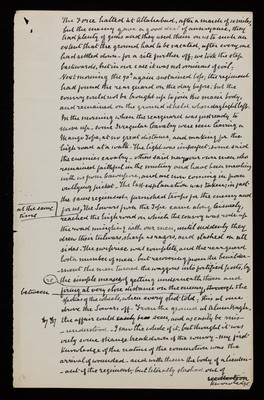 The Force halted at Allahabad, after a march of 10 miles,
but the enemy gave a good deal of annoyance, they
had plenty of guns and they used them on us to such an
extent that the ground had to be vacated, after every one
had settled down - for a sett further off; we took this step
backwards, but in our case it was not ominous of evil.
Next morning the 9th again sustained life, the regiment
had found the rear guard on the day before but the
convoy could not be brought up to join the main body,
and remained on the ground it held when daylight left.
In the morning when the rearguard was just ready to
move up, some Irregular Cavalry were seen leaving a
Mango Tope, at no great distance, and making for the
high road at a walk. The light was imperfect, some said
the enemies cavalry, others said our own men, who
remained faithful in the mutiny and have been marching
with us from Cawnpore, and are now coming in from
outlying picket. The last explanation was taken, in fact
the same regiment furnished troops for the enemy and
at the same time
for us. The Sowars from the Tope came along leisurely,
reached the high road on which the convoy was, rode up
the road mingling with our men, until suddenly they
drew their tulwars, sharp as razors, and slashed on all
sides. The surprise was complete and the rearguard
lost a number of men but recovering from the bewilder-
-ment the men turned the waggons into fortified posts, by
(re)
the simple means of getting underneath them and
between
firing at very close distance on the enemy, through the
spokes of the wheels, when every shot told, this at once
drove the Sowars off. From the ground at Alumbagh,
the affair could be seen, and as easily be mis-
-understood. I saw the whole of it, but thought it was
only some strange breakdown of the convoy - my first
knowledge of the nature of the commotion was the
arrival of wounded. and with them the body of a lieuten-
-ant of the regiment, but literally slashed out of
Knowledge